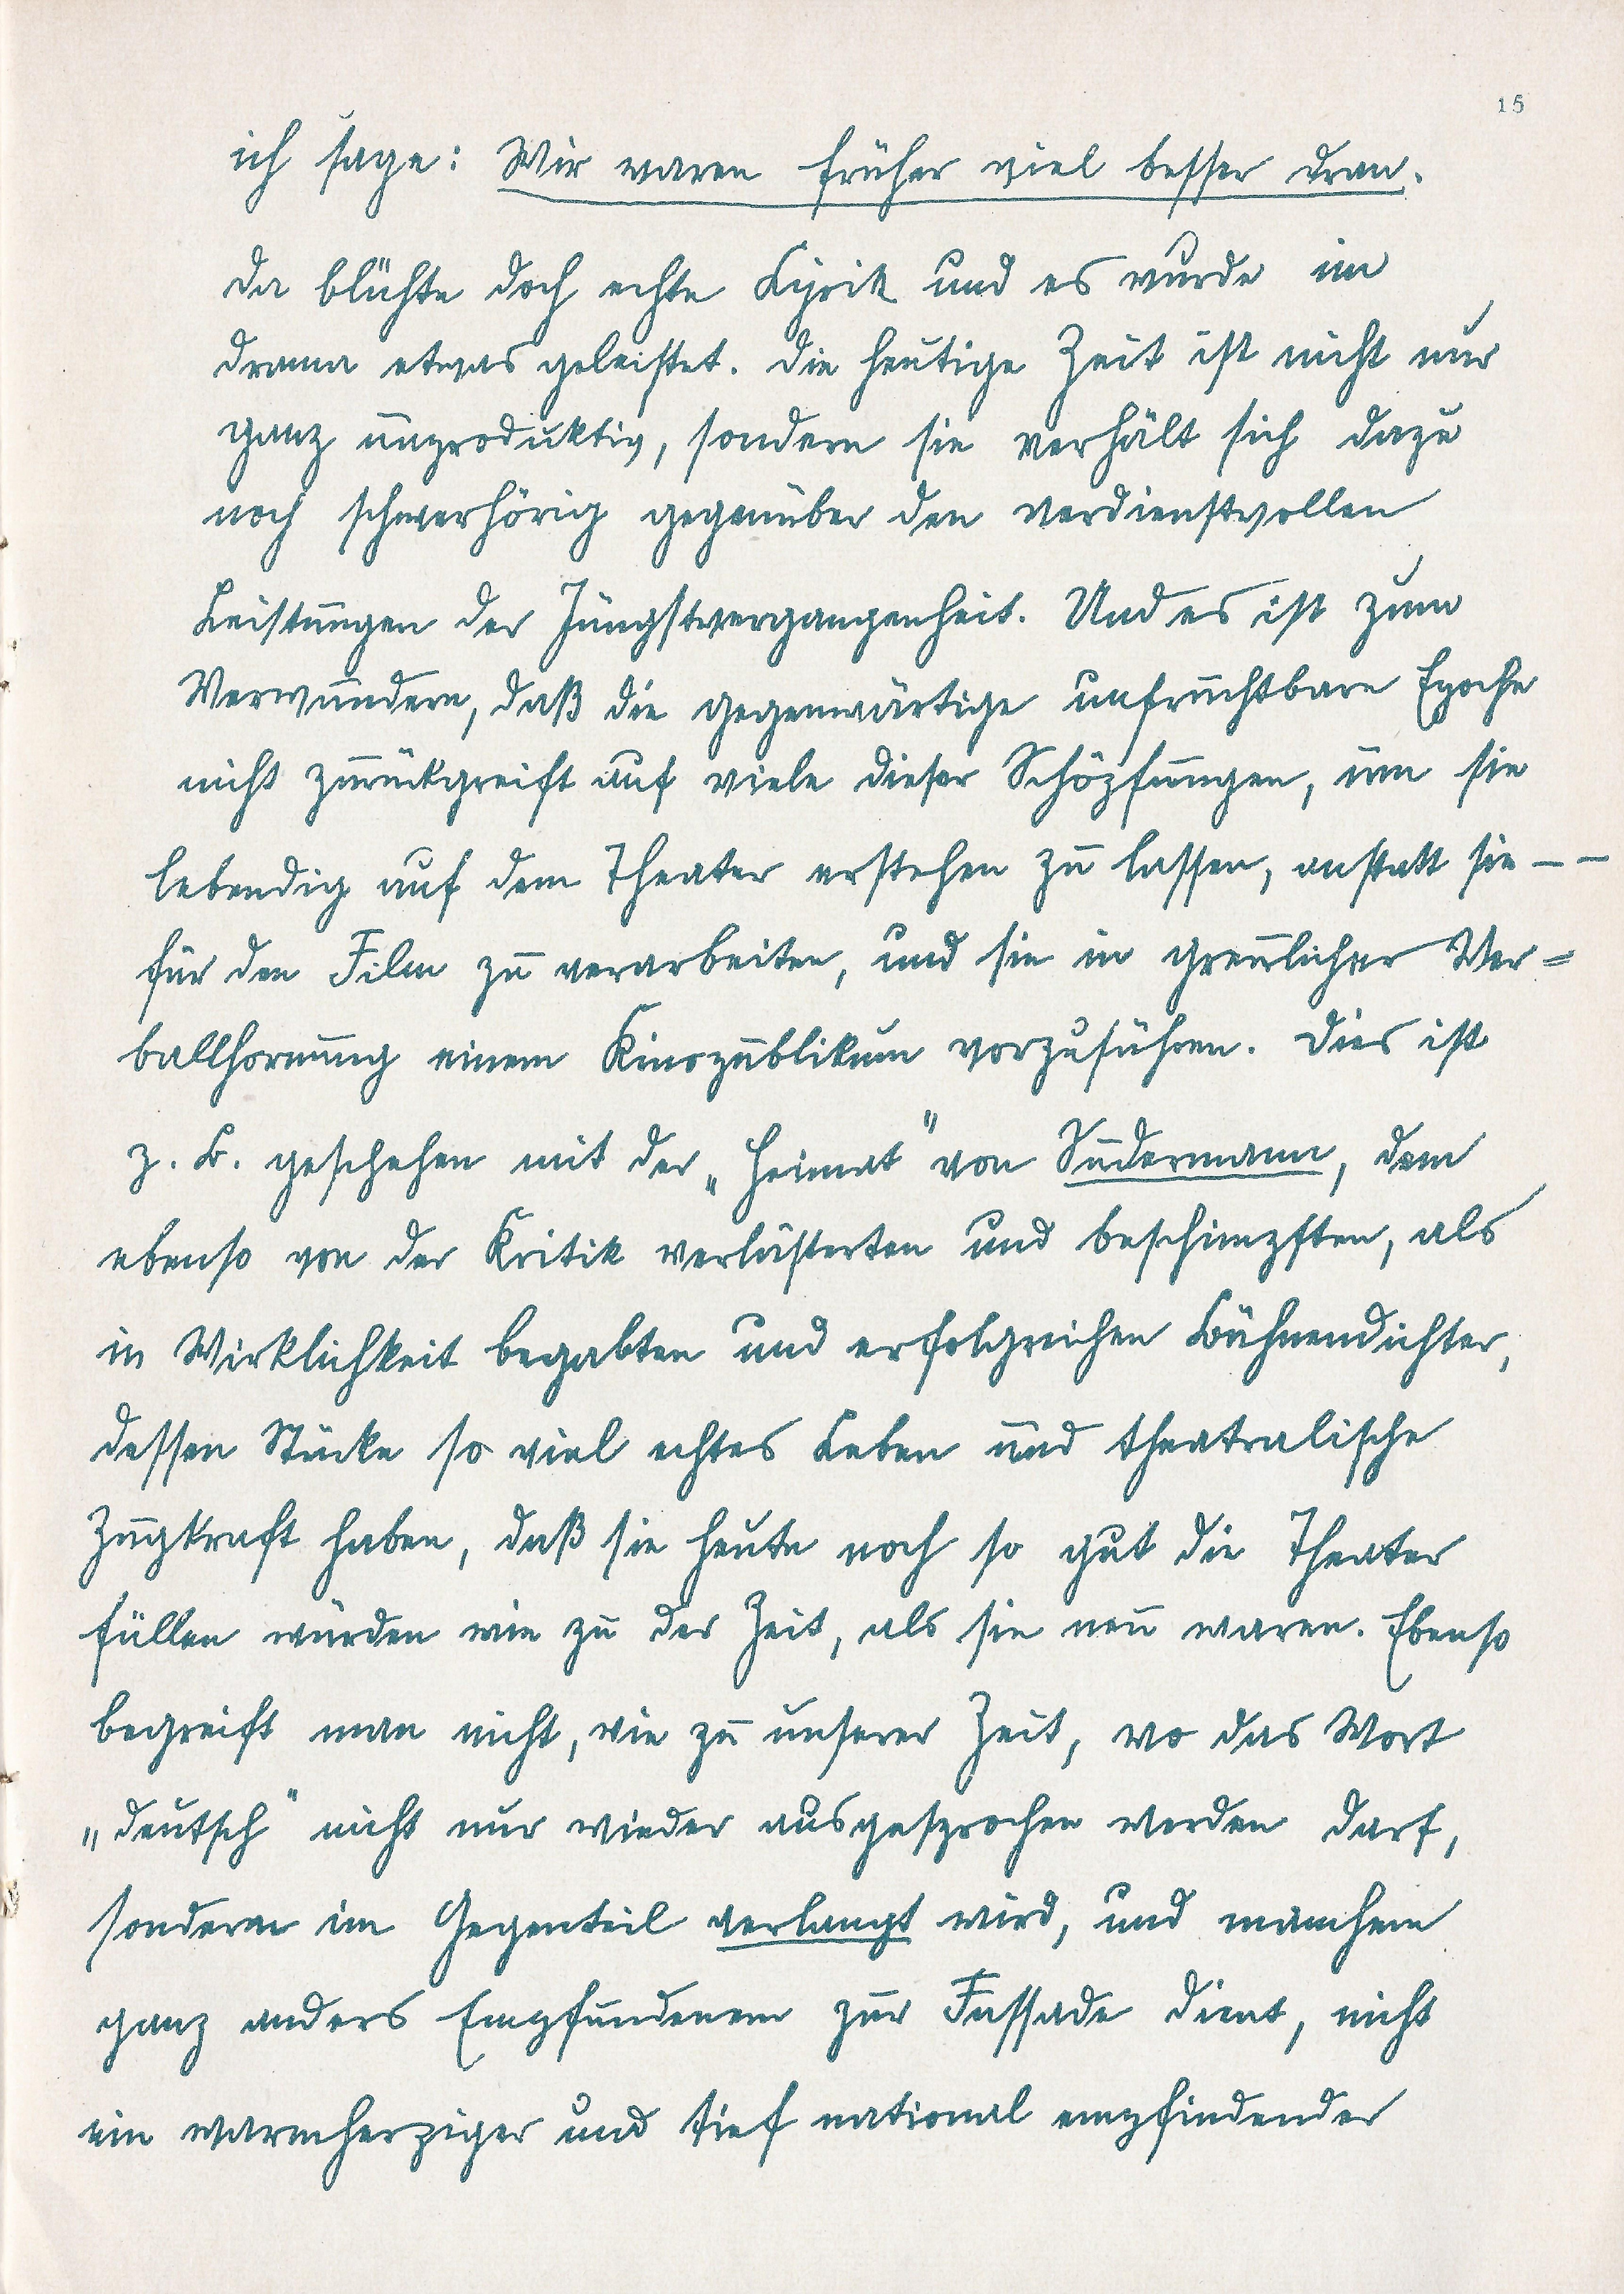 15
ich sage: Wir waren früher viel besser dran.
Da blühte doch echte Lyrik und es wurde im
Drama etwas geleistet. Die heutige Zeit ist nicht nur
ganz unproduktiv, sondern sie verhält sich dazu
noch schwerhörig gegenüber den verdienstvollen
Leistungen der Jüngstvergangenheit. Und es ist zum
Verwundern, daß die gegenwärtige unfruchtbare Epoche
nicht zurückgreift auf viele dieser Schöpfungen, um sie
lebendig auf dem Theater erstehen zu lassen, anstatt sie – –
für den Film zu verarbeiten, und sie in greulicher Ver=
ballhornung einem Kinopublikum vorzuführen. Dies ist
z. B. geschehen mit der „Heimat" von Sudermann, dem
ebenso von der Kritik verlästerten und beschimpften, als
in Wirklichkeit begabten und erfolgreichen Bühnendichter,
dessen Stücke so viel echtes Leben und theatralische
Zugkraft haben, daß sie heute noch so gut die Theater
füllen würden wie zu der Zeit, als sie neu waren. Ebenso
begreift man nicht, wie zu unserer Zeit, wo das Wort
„deutsch" nicht nur wieder ausgesprochen werden darf,
sondern im Gegenteil verlangt wird, und manchem
ganz anders Empfundenem zur Fassade dient, nicht
ein warmherziger und tief national empfindender